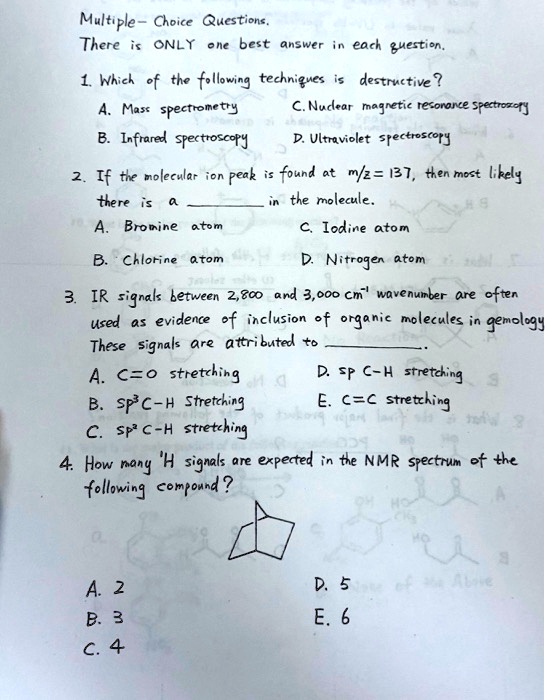 Multiple- Choice Questions.
There is ONLY one best answer in each question.
1. Which of the following techniques is destructive?
A. Mass spectrometry C. Nuclear magnetic resonance spectroscopy
B. Infrared spectroscopy D. Ultraviolet spectroscopy
2. If the molecular ion peak is found at m/z = 137, then most likely
there is a ________ in the molecule.
A. Bromine atom C. Iodine atom
B. Chlorine atom D. Nitrogen atom
3. IR signals between 2,800 and 3,000 cm⁻¹ wavenumber are often
used as evidence of inclusion of organic molecules in gemology
These signals are attributed to ________.
A. C=O stretching D. sp C-H stretching
B. sp³ C-H stretching E. C=C stretching
C. sp² C-H stretching
4. How many ¹H signals are expected in the NMR spectrum of the
following compound?
A. 2 D. 5
B. 3 E. 6
C. 4